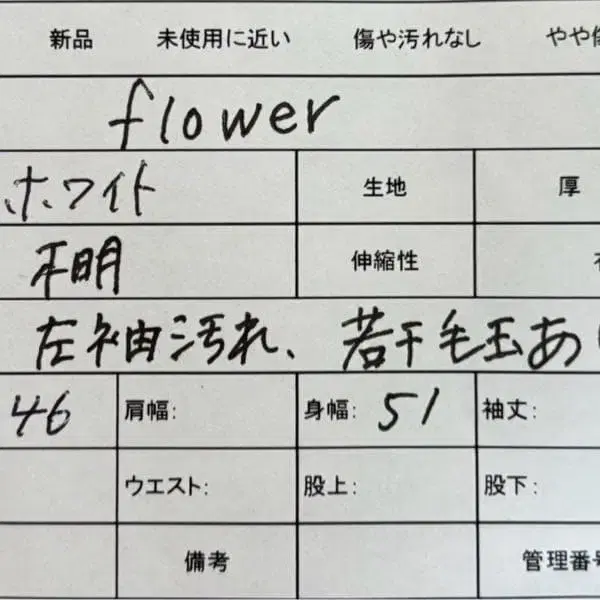 新品 未使用に近い 傷や汚れなし やや傷
flower
ホワイト 生地 厚
不明 伸縮性
左袖汚れ、若干毛玉あり
46 肩幅: 身幅: 51 袖丈:
ウエスト: 股上: 股下:
備考 管理番号